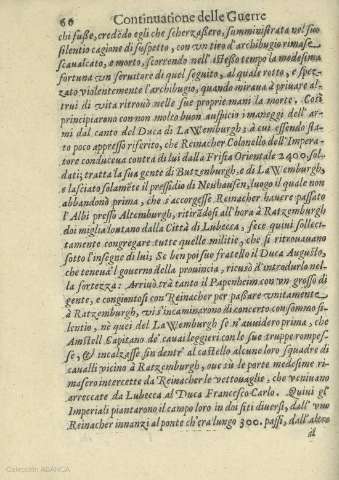 66 Continuatione delle Guerre
chi fuße, credẽdo egli che scherzaßero, sumministrata nel suo
silentio cagione di suspetto, con vn tiro d'archibugio rimase
scaualcato, e morto, scorrendo nell'isteßo tempo la medesima
fortuna vn seruitore di quel seguito, al quale rotto, e spez-
zato violentemente l'archibugio, quando miraua à priuare al-
trui di vita ritrouò nelle sue proprie mani la morte. Così
principiarono con non molto buon auspicio i maneggi dell'ar-
mi dal canto del Duca di LaWemburgh: à cui essendo sta-
to poco appresso riferito, che Reinacher Colonello dell'Impera-
tore conduceua contra di lui dalla Frisia Orientale 2400. sol-
dati; tratta la sua gente di Butzenburgh, e di LaWemburgh,
e lasciato solamẽte il pressidio di Neuhausen, luogo il quale non
abbandonò prima, che s'accorgesse Reinacher hauere passato
l'Albi presso Altemburgh, ritiròdesi all'hora à Ratzemburgh
doi miglia lontano dalla Città di Lubecca; fece quiui solleci-
tamente congregare tutte quelle militie, che si ritrouauano
sotto l'insegne di lui; Se ben poi suo fratello il Duca Augusto,
che teneua'l gouerno della prouincia, ricusò d'introdurlo nel-
la fortezza: Arriuò trà tanto il Papenheim con vn grosso di
gente, e congiontosi con Reinacher per paßare vnitamente
à Ratzemburgh, vi s'incaminarono di concerto con sommo si-
lentio, nè quei del LaWemburgh se n'auuidero prima, che
Amstell Capitano de' cauai leggieri con le sue truppe rompes-
se, & incalzasse sin dentr' al castello alcune loro squadre di
caualli vicino à Ratzemburgh, oue sù le porte medesime ri-
masero intercette da Reinacher le vettouaglie, che veniuano
arreccate da Lubecca al Duca Francesco-Carlo. Quini gl'
Imperiali piantarono il campo loro in doi siti diuersi, dall' vno
Reinacher innanzi al ponte ch'era lungo 300. passi, dall'altro
il
Colección ABANCA